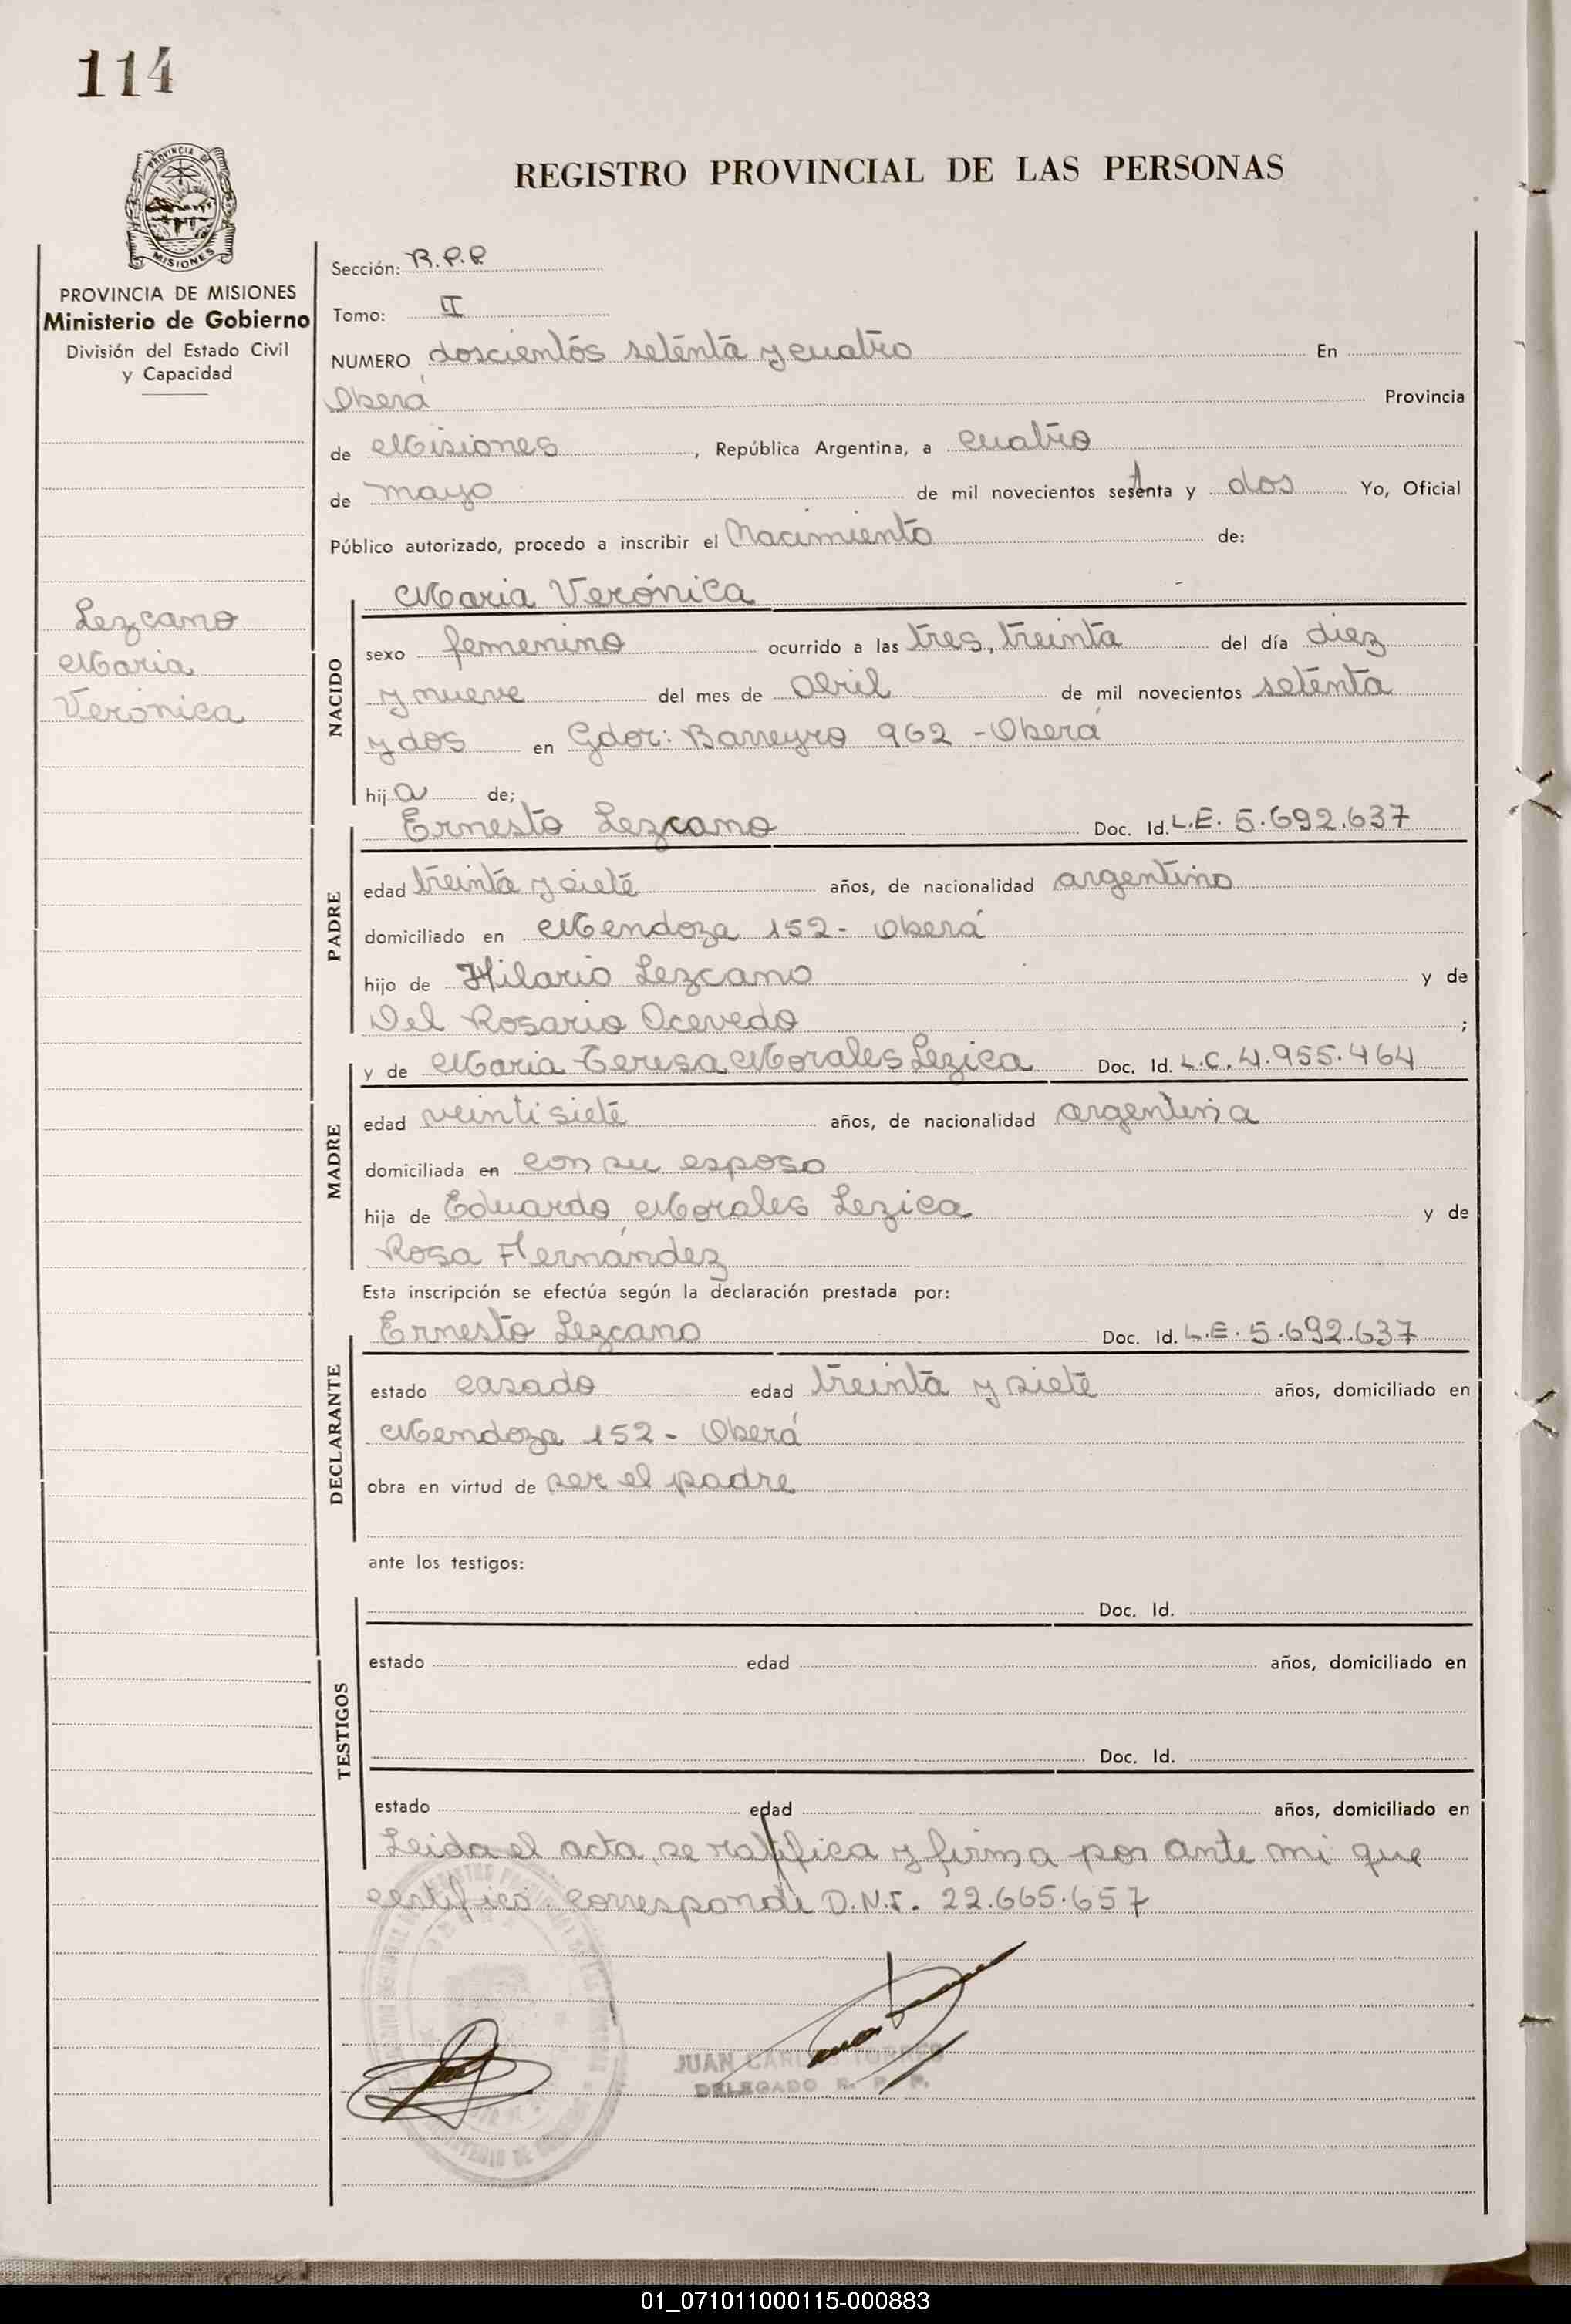 114
PROVINCIA DE MISIONES
REGISTRO PROVINCIAL DE LAS PERSONAS
PROVINCIA DE MISIONES
Ministerio de Gobierno
División del Estado Civil
y Capacidad
Lezcano
Maria
Verónica
Sección: R.P.P
Tomo: II
NUMERO doscientos setenta y cuatro En
Oberá Provincia
de Misiones, República Argentina, a cuatro
de mayo de mil novecientos setenta y dos Yo, Oficial
Público autorizado, procedo a inscribir el Nacimiento de:
NACIDO
Maria Verónica
sexo femenino ocurrido a las tres, treinta del día diez
y nueve del mes de Abril de mil novecientos setenta
y dos en Gdor: Barreyro 962 - Oberá
hija de;
PADRE
Ernesto Lezcano Doc. Id. L.E. 5.692.637
edad treinta y siete años, de nacionalidad argentino
domiciliado en Mendoza 152- Oberá
hijo de Hilario Lezcano y de
Del Rosario Acevedo ;
MADRE
y de Maria Teresa Morales Lezica Doc. Id. L.C. 4.955.464
edad veintisiete años, de nacionalidad argentina
domiciliada en con su esposo
hija de Eduardo Morales Lezica y de
Rosa Hernández
Esta inscripción se efectúa según la declaración prestada por:
DECLARANTE
Ernesto Lezcano Doc. Id. L.E. 5.692.637
estado casado edad treinta y siete años, domiciliado en
Mendoza 152- Oberá
obra en virtud de ser el padre
ante los testigos:
TESTIGOS
Doc. Id.
estado edad años, domiciliado en
Doc. Id.
estado edad años, domiciliado en
Leida el acta, se ratifica y firma por ante mi que
certifico. corresponde D.N.I. 22.665.657
JUAN CARLOS TORRES
DELEGADO R. P. P.
01_071011000115-000883